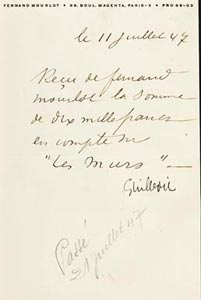 FERNAND MOURLOT • 55, BOUL. MAGENTA, PARIS-X •
le 11 juillet 47
Reçu de fernand
mourlot la somme
de dix mille francs
en compte sur
"Les Murs" —
Guillevic
Passé
21 juillet 47